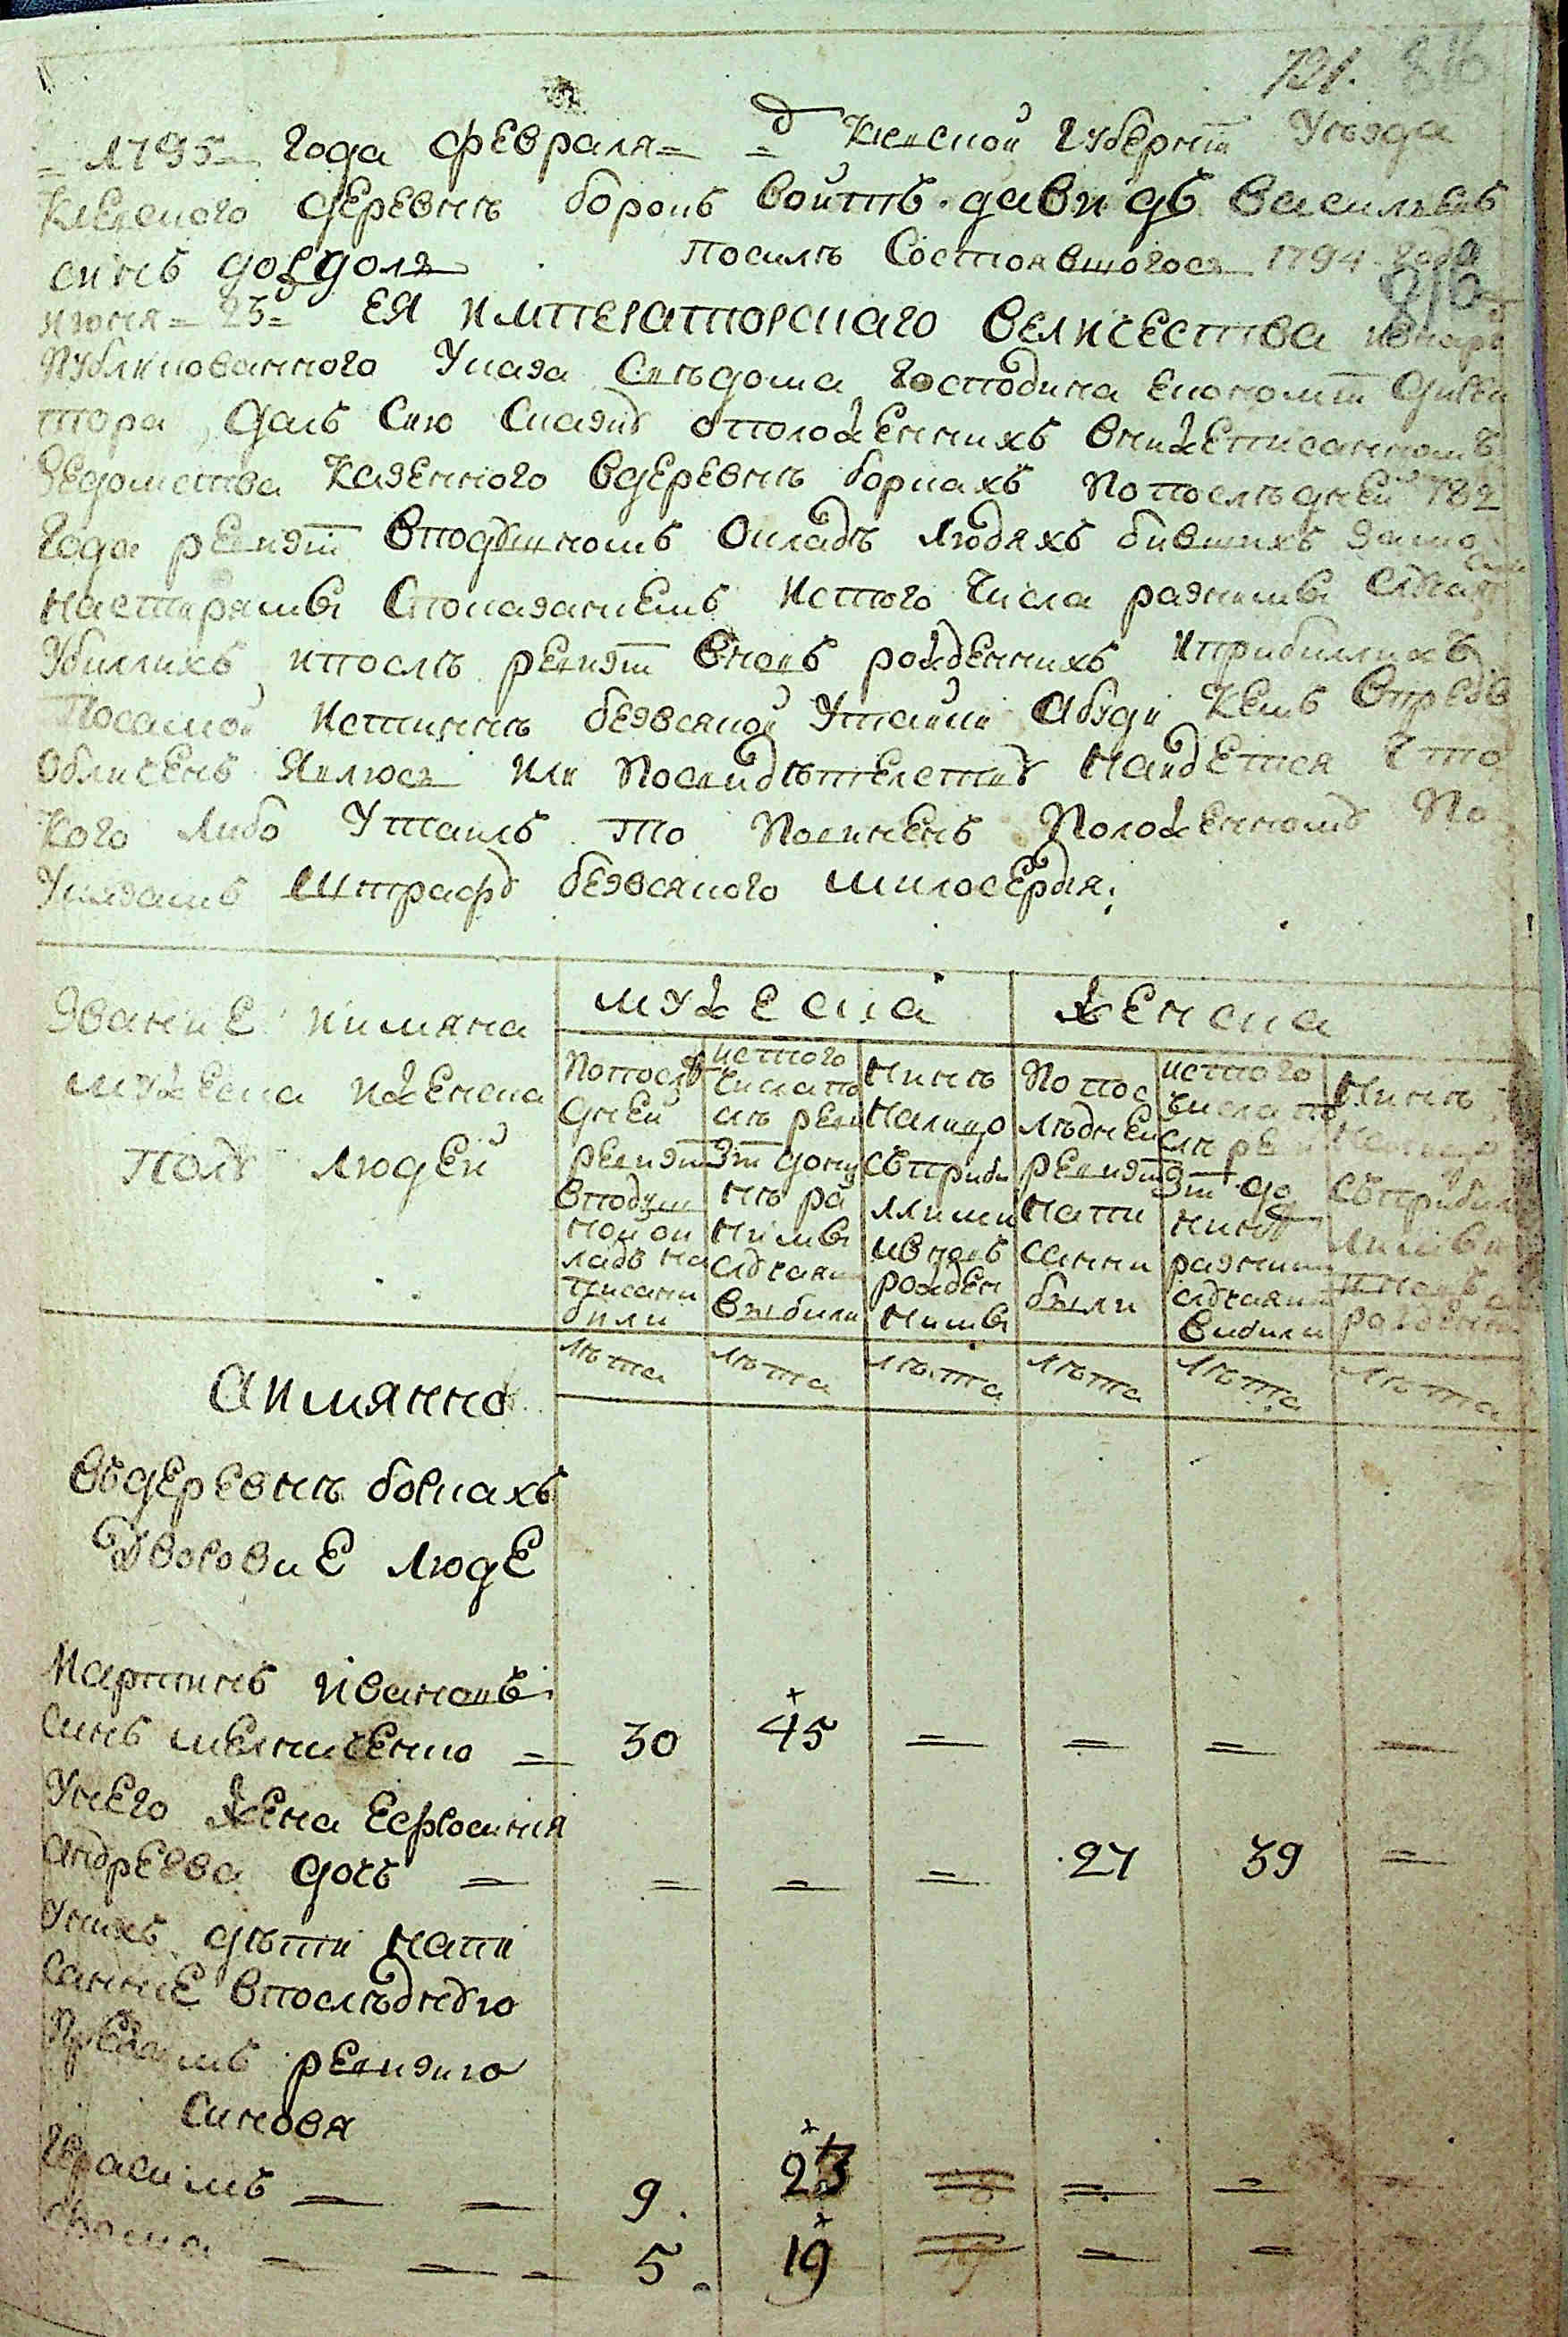 1795 года февраля = д Киевской губернии Уезда
Киевского деревнѣ борокъ войтъ давидъ васильевъ
синъ довдоля посилѣ Состоявшогося 1794 года
июня = 23 = ЕЯ ИМПЕРАТОРСКАГО ВЕЛИЧЕСТВА
публикованного Указа Сѣвдома господина економии дирек
тора, далъ Сию Сказку оположеннихъ внижеписанномъ
Ведомства Казенного вдеревнѣ боркахъ Попослѣдней 782
Года ревизии вподушномъ окладѣ людяхъ бившихъ
настирямы Спопазаниемъ Истого Числа разними Случаи
Убиллихъ ипослѣ ревизии вновъ рожденнихъ иприбиллихъ
Посамой Истиннѣ безвсякой Утайки Абуди Кемъ Впредь
обличенъ Явлюся или Посвидѣтелству найдется Что
Кого либо Утаилъ то Повиненъ Положенному По
Указамъ штрафу безвсякого милосердия.
Звание иимяна
мужеска иженска
полу людей
мужеска
женска
Попослѣ
дней
ревизии
вподуш
ной ок
ладъ на
писани
били
истого
числа по
слѣ реви
зии дони
нѣ ра
ними
случаями
выбили
Нинѣ
налицо
съприби
ллими
ивновъ
рожден
ними
Попос
лѣдней
ревизии
напи
санни
были
истого
числа по
слѣ реви
зии до
нинѣ
разними
случаями
вибили
Нинѣ
налицо
съприбил
лими
ивновъ
рожденни
лѣта лѣта лѣта лѣта лѣта лѣта
Аимянно
Въдеревнѣ боркахъ
Дворовие людЕ
Мартинъ Ивановъ
синъ мелниченко = 30 45 = = = =
Унего жена Ефросиния
Андреева дочъ = = = = 27 39 =
Унихъ дѣти напи
санние впослѣднюю
предъ симъ ревизию
Синовя
Герасимъ = = 9. 23 = = =
Фома = = = 5. 19 = =